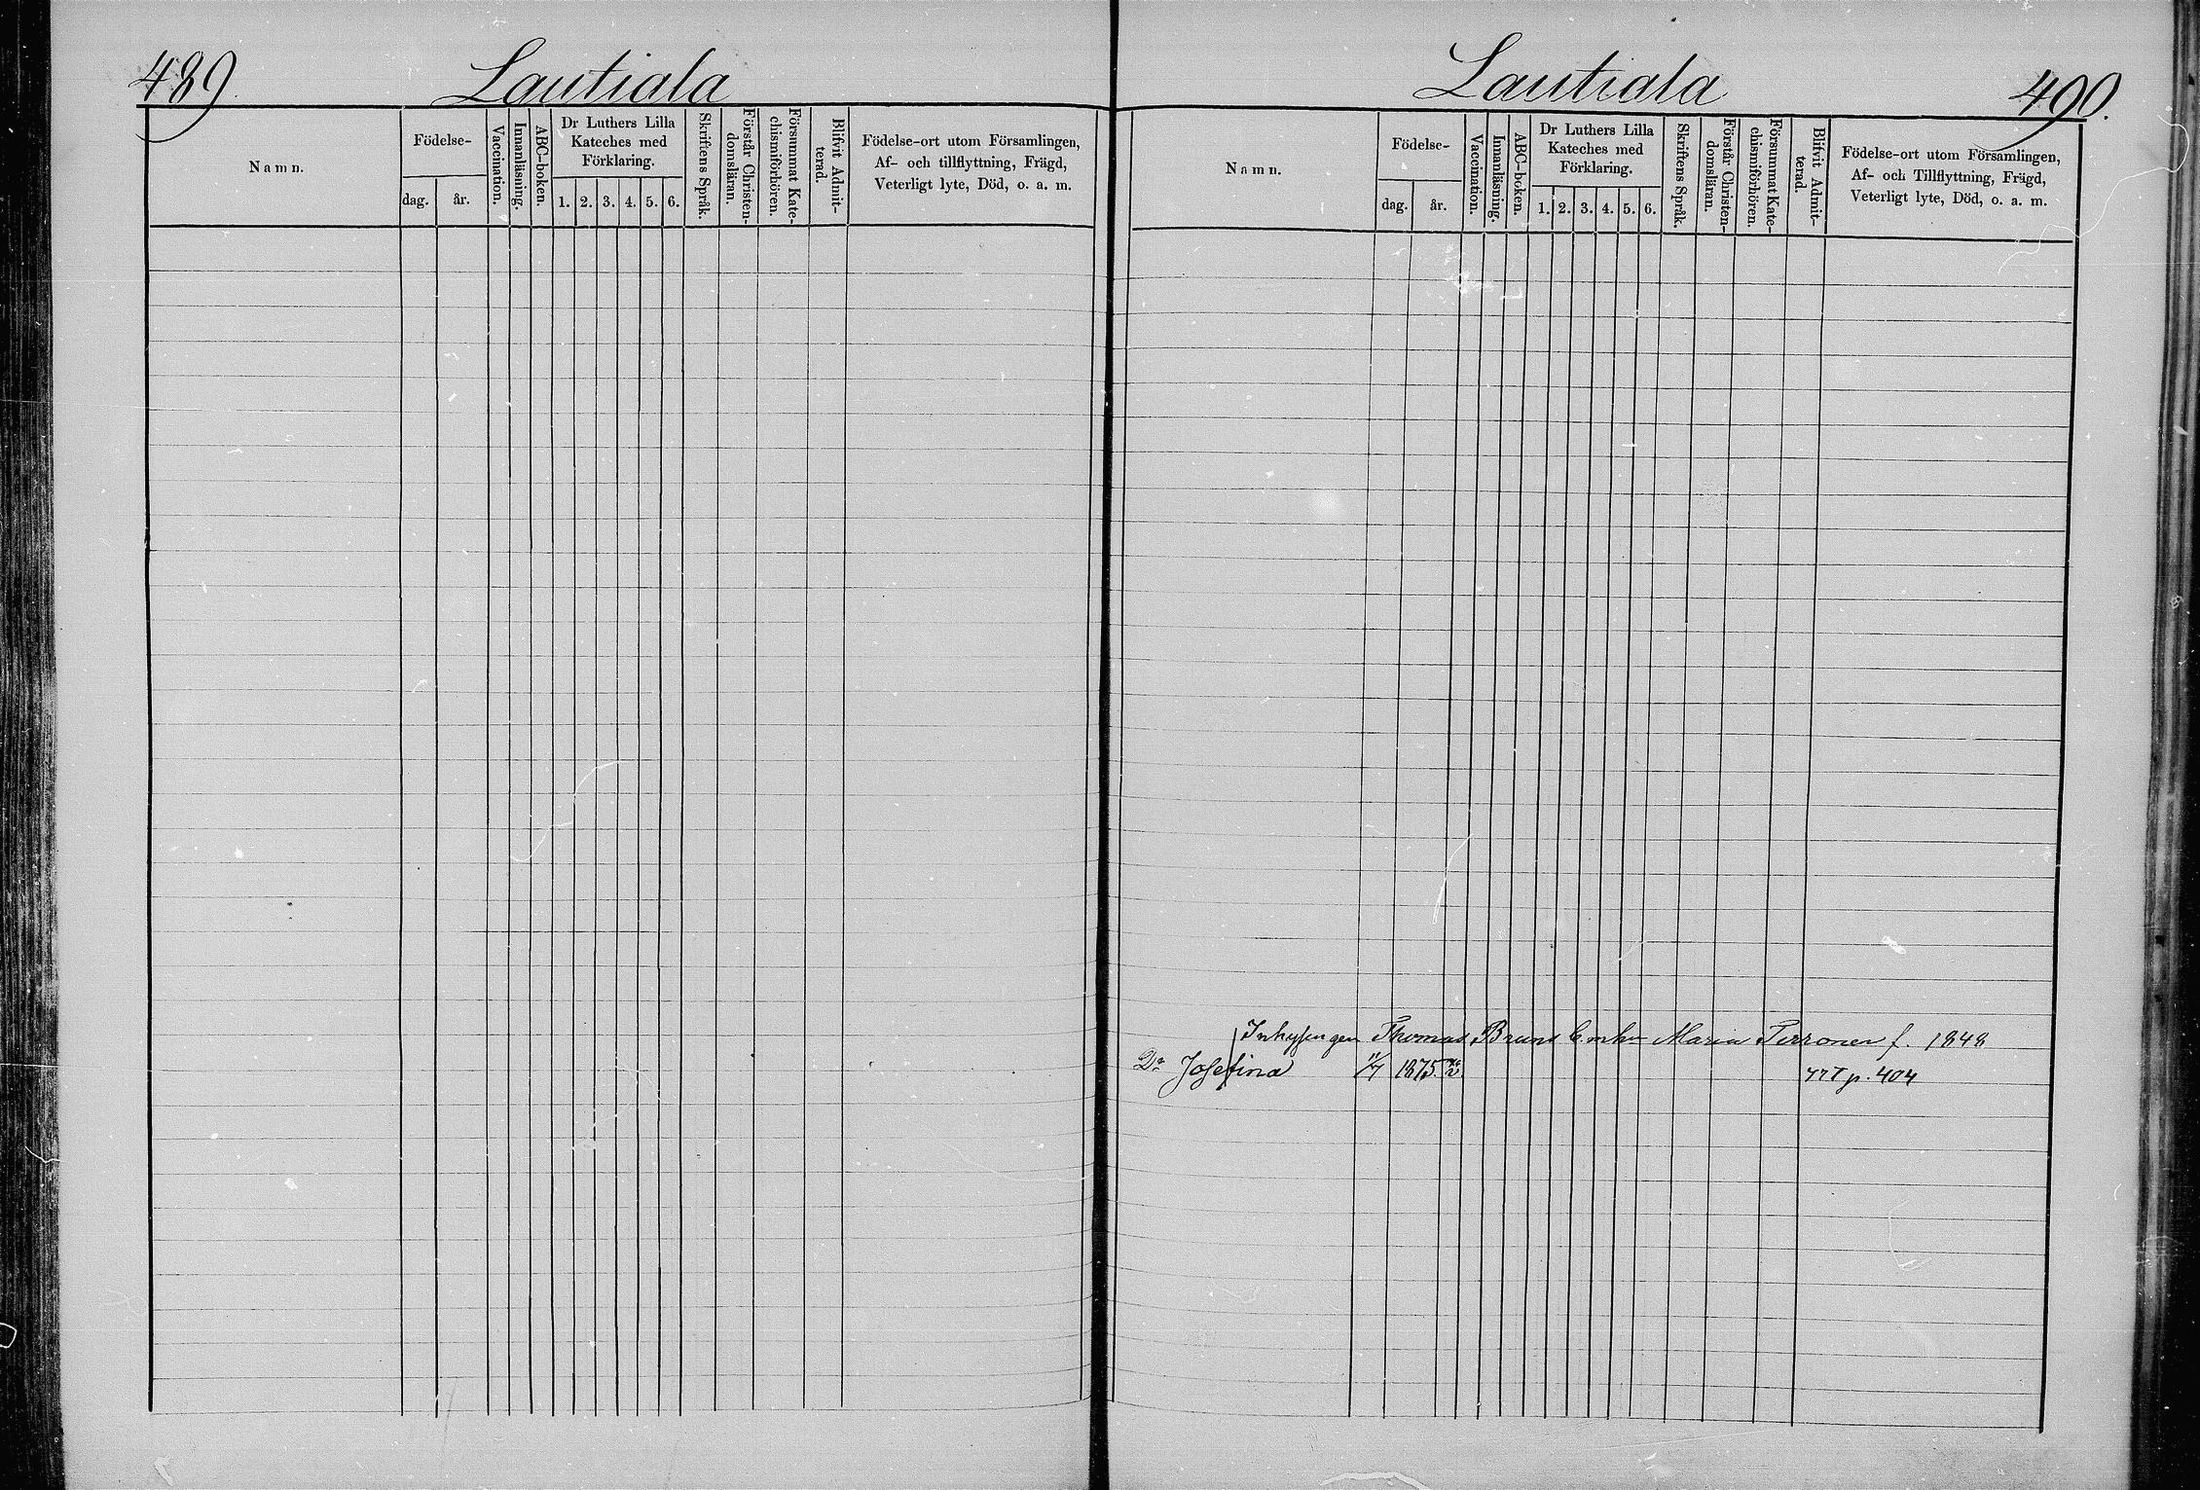 489.
Lautiala
Namn.
Födelse-
dag.
år.
Vaccination.
Innanläsning.
ABC-boken.
Dr Luthers Lilla
Kateches med
Förklaring.
1. 2. 3. 4. 5. 6.
Skriftens Språk.
Förstår Christen-
domsläran.
Försummat Kate-
chismiförhören.
Blifvit Admit-
terad.
Födelse-ort utom Församlingen,
Af- och tillflyttning, Frägd,
Veterligt lyte, Död, o. a. m.
Lautiala
490.
Namn.
Födelse-
dag.
år.
Vaccination.
Innanläsning.
ABC-boken.
Dr Luthers Lilla
Kateches med
Förklaring.
1. 2. 3. 4. 5. 6.
Skriftens Språk.
Förstår Christen-
domsläran.
Försummat Kate-
chismiförhören.
Blifvit Admit-
terad.
Födelse-ort utom Församlingen,
Af- och Tillflyttning, Frägd,
Veterligt lyte, Död, o. a. m.
Inhysingen Thomas Bruns Enka Maria f. 1848
Dr Josefina 1875 p. 404